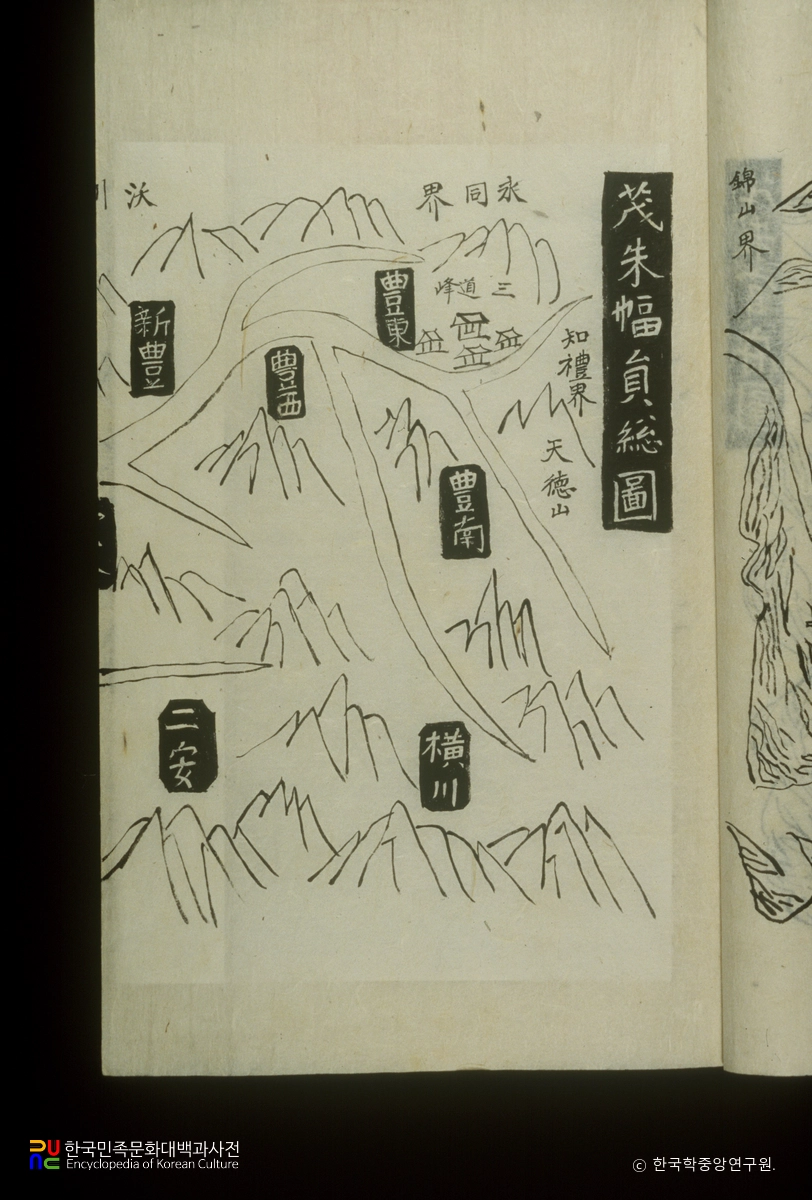 茂朱幅員総圖
永同界
沃川
三道峰
知禮界
天德山
豊東
豊西
豊南
新豊
横川
二安
錦山界
한국민족문화대백과사전
Encyclopedia of Korean Culture
© 한국학중앙연구원.